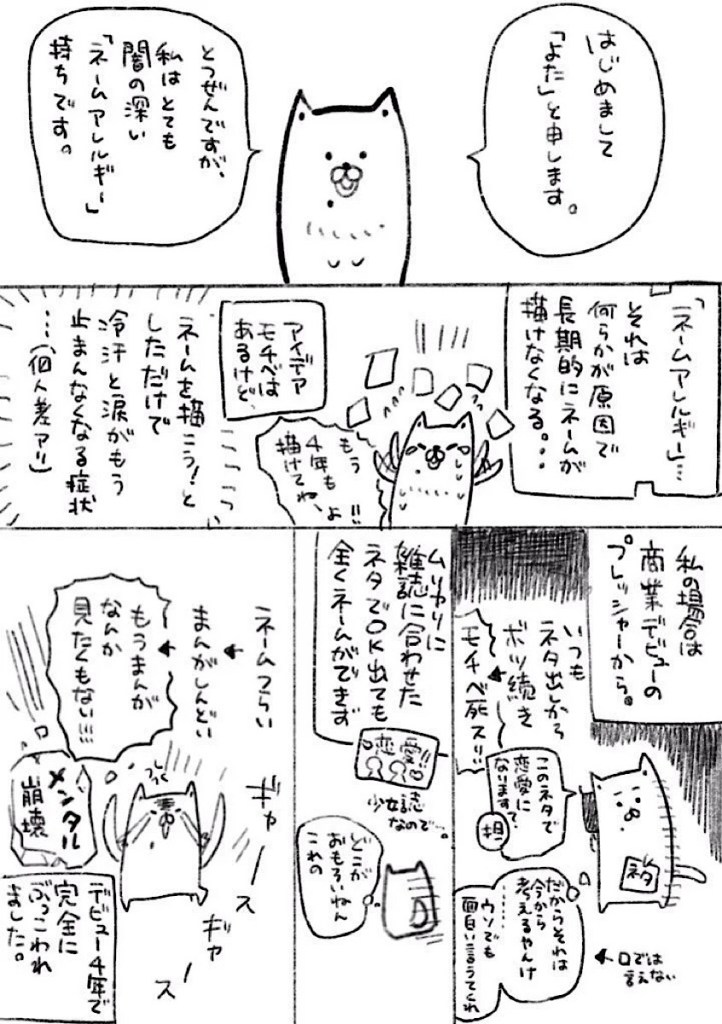 はじめまして
「よた」と申します。
とつぜんですが、
私はとても
闇の深い
「ネームアレルギー」
持ちです。
「ネームアレルギー」…
それは
何らかが原因で
長期的にネームが
描けなくなる。…
アイデア
モチベは
あるけど、
もう
4年も
描けてねぇよ!!
ネームを描こう!と
しただけで
冷汗と涙がもう
止まんなくなる症状
…(個人差アリ)
私の場合は
商業デビューの
プレッシャーから。
いつも
ネタ出しから
ボツ続き
モチベ死ス!!
このネタで
恋愛に
なりますて?
担
ネタ
だからそれは
今から
考えるやんけ
ウソでも
面白い言うてくれ
口では
言えない
ムリヤリに
雑誌に合わせた
ネタでOK出ても
全くネームができず
恋愛!!
少女誌
なので…。
どこが
おもろいねん
これの
ネームつらい
まんがしんどい
もうまんが
なんか
見たくもない!!!
メンタル
崩壊
ギャースギャス
デビュー4年で
完全に
ぶっこわれ
ました。